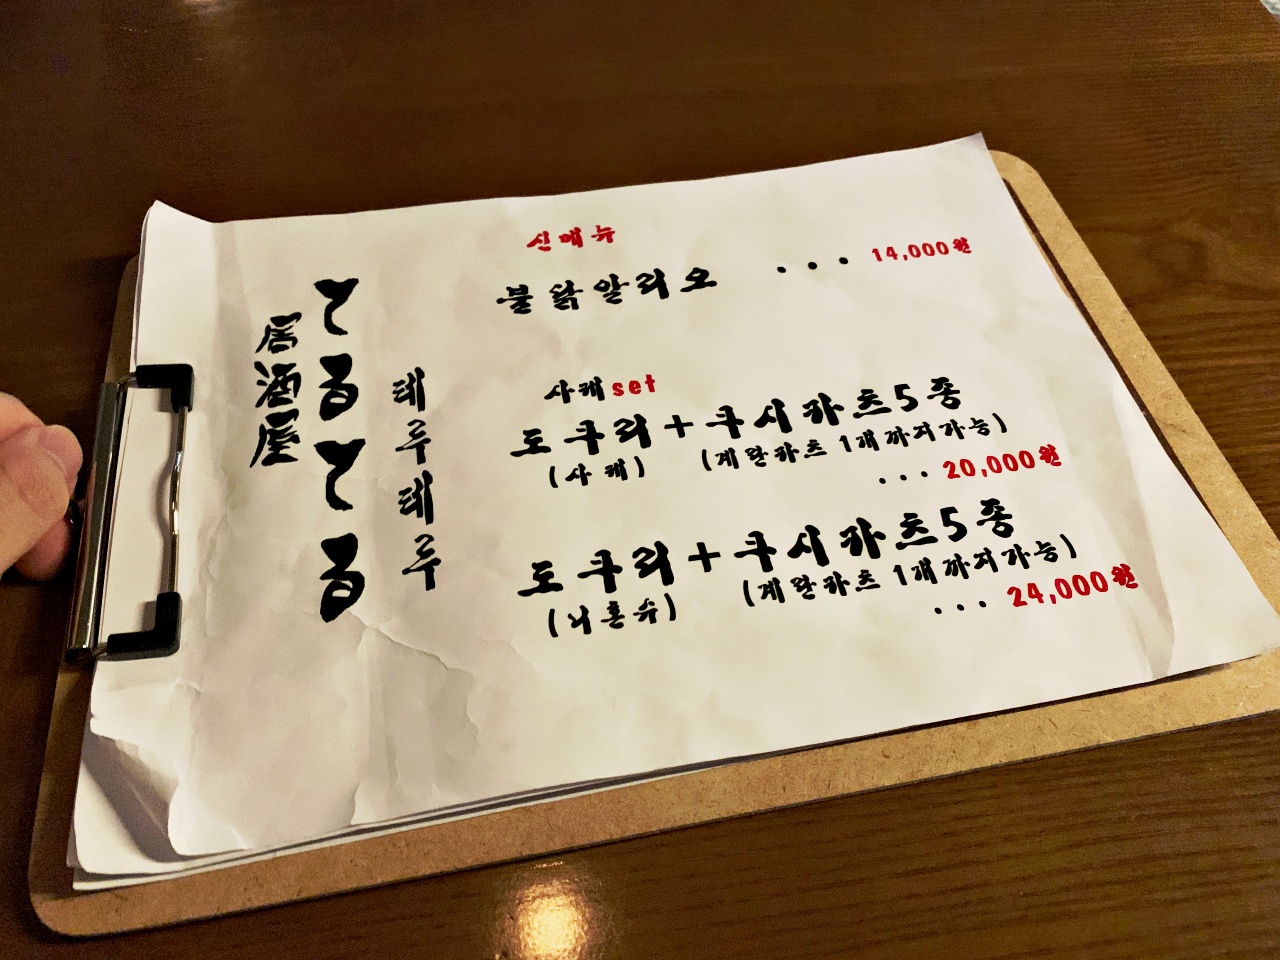 居酒屋
てるてる
테루테루
신메뉴
불닭알리오 ... 14,000원
사케set
도쿠리+쿠시카츠5종
(사케) (계란카츠 1개까지가능)
... 20,000원
도쿠리+쿠시카츠5종
(니혼슈) (계란카츠 1개까지가능)
... 24,000원